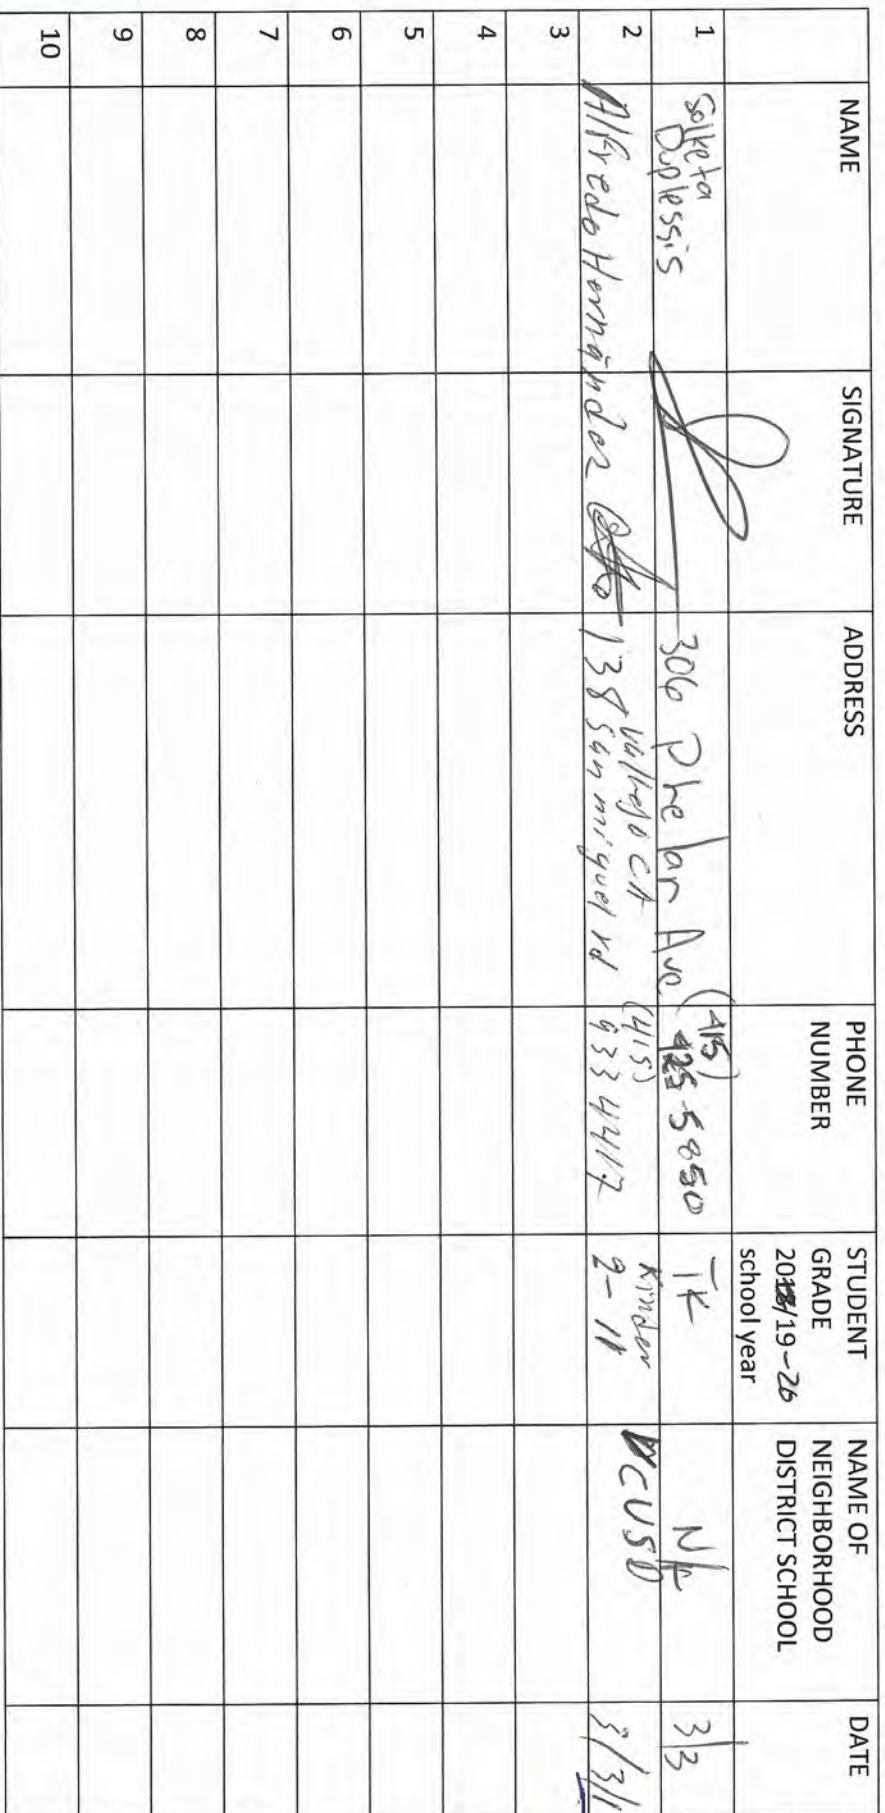 NAME SIGNATURE ADDRESS PHONE NUMBER STUDENT GRADE 2018/19-20 school year NAME OF NEIGHBORHOOD DISTRICT SCHOOL DATE
1 Solketa Duplessis 306 Phelan Ave (415) 425-5850 TK N/A 3/3
2 Alfredo Hernández 138 San miguel rd Vallejo CA (415) 933 4417 Kinder 2-11 VCUSD 3/3/1
3
4
5
6
7
8
9
10